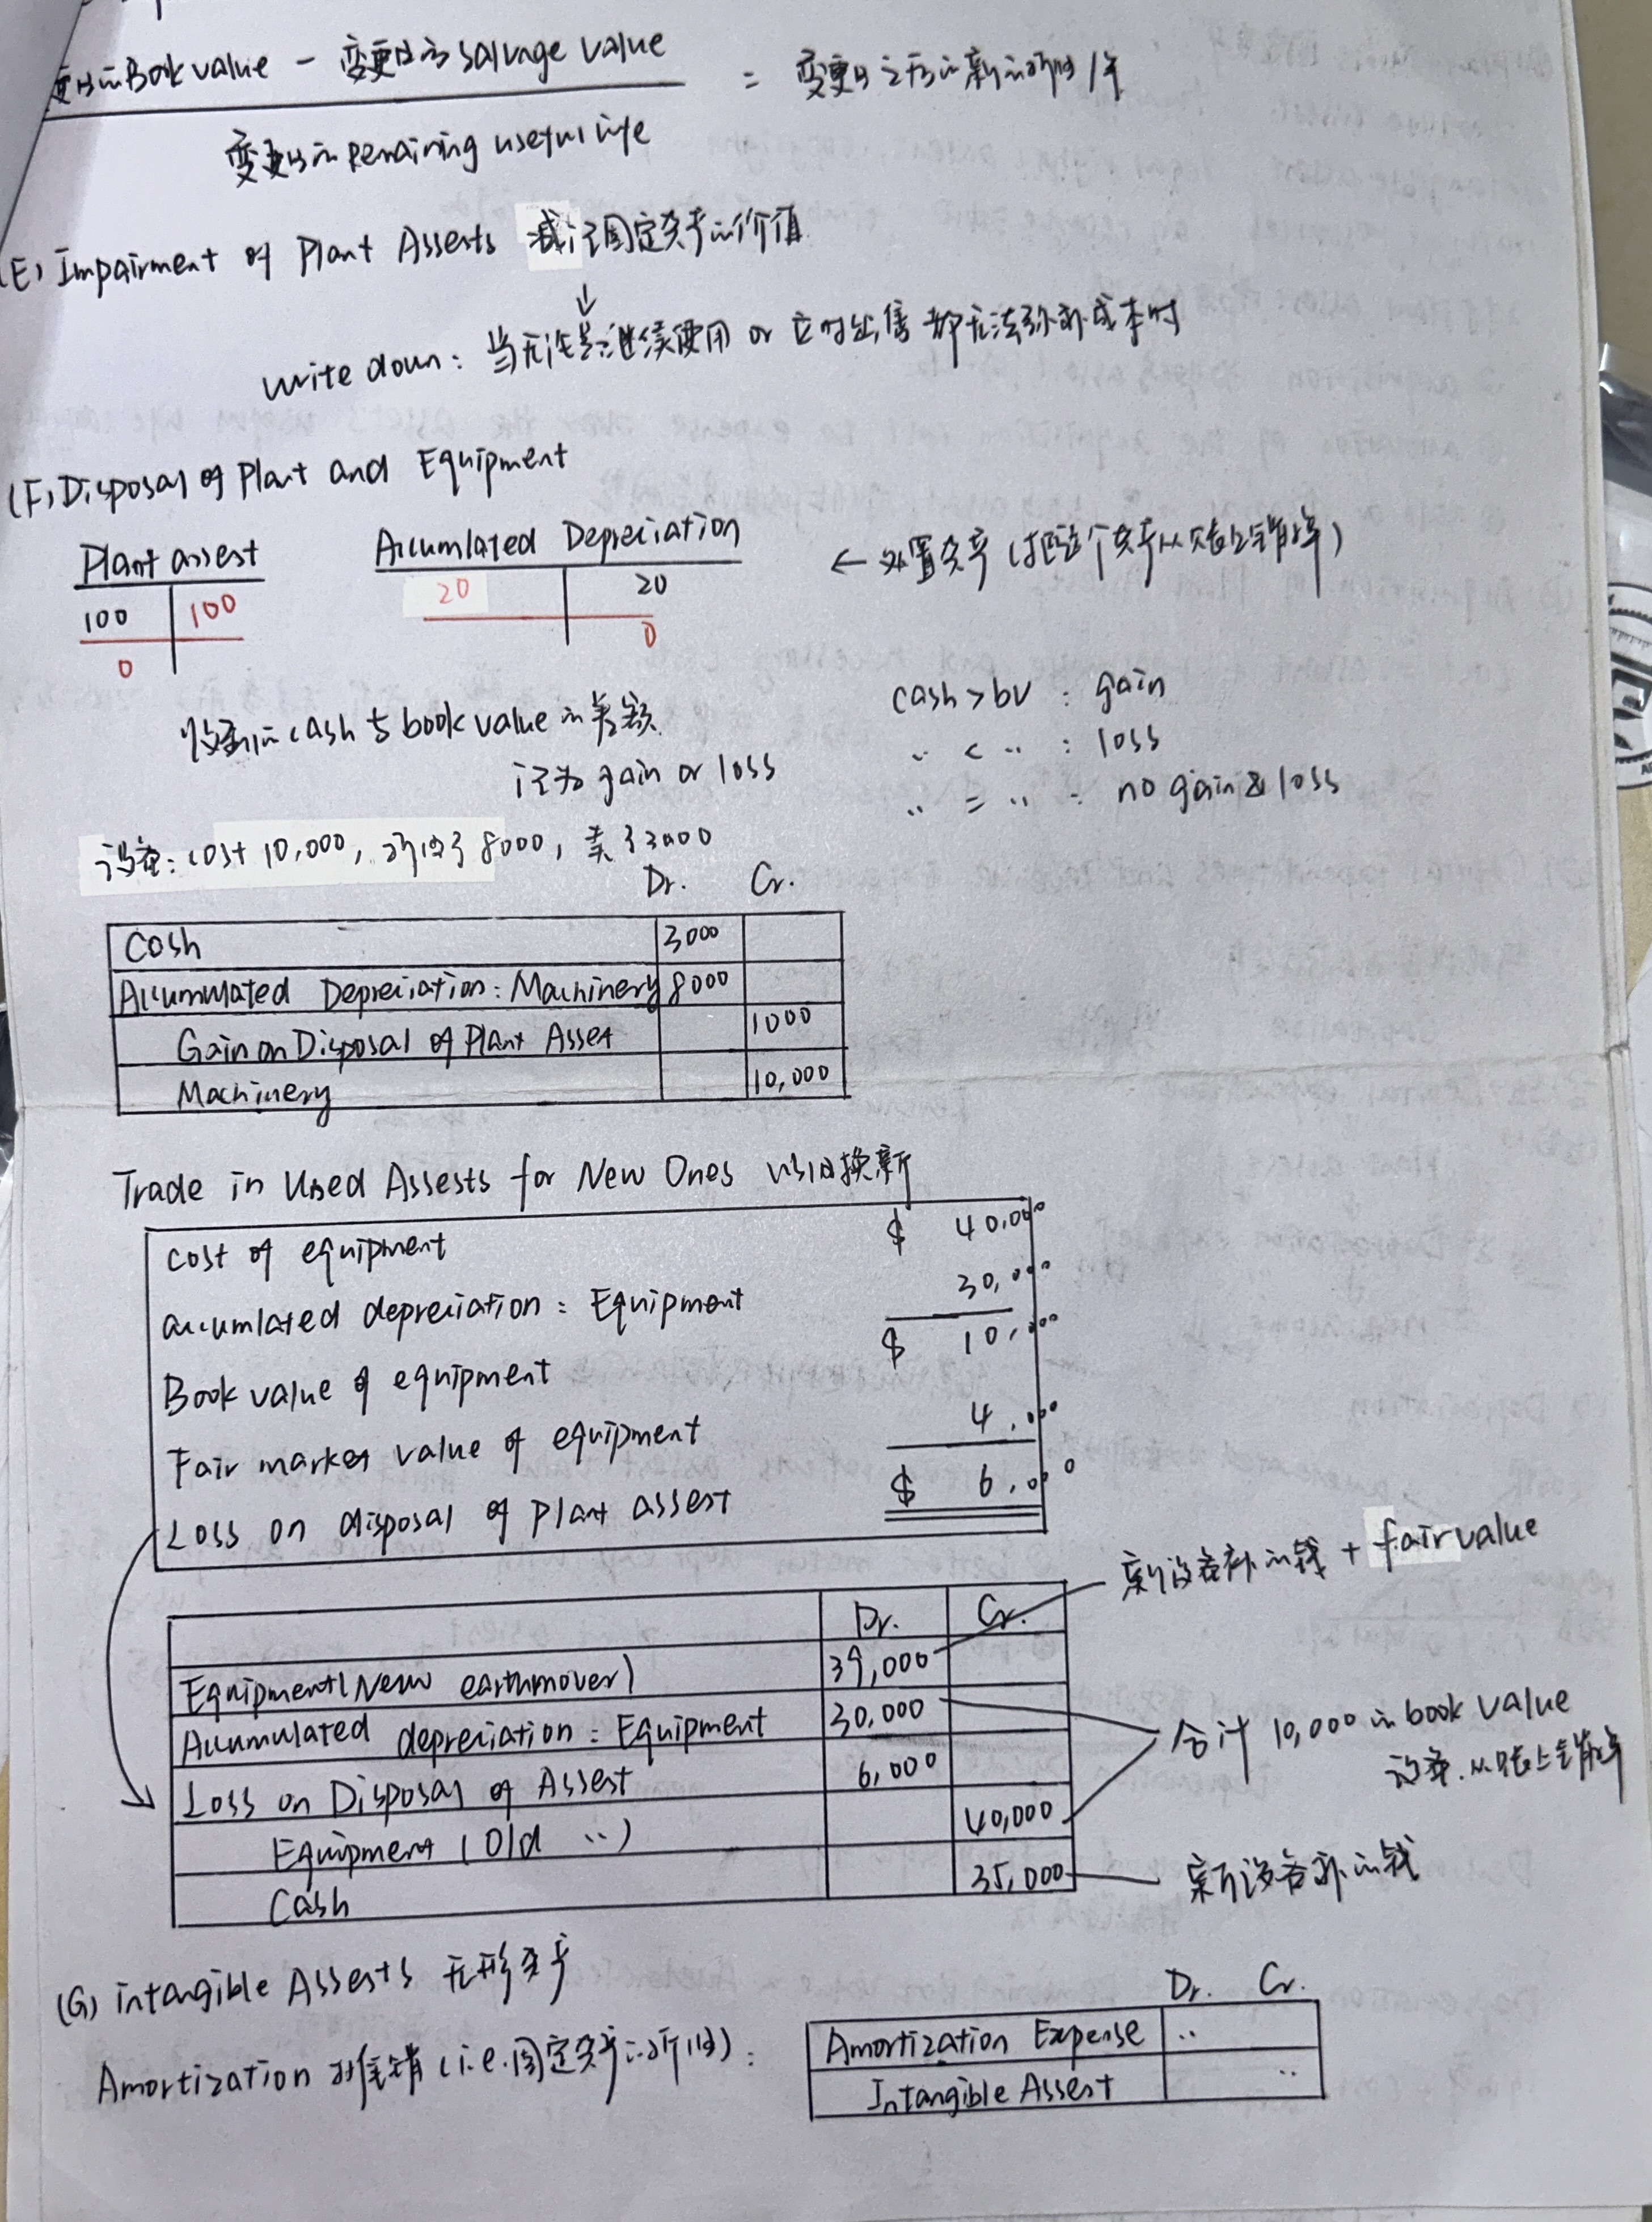 变更日的Book value - 变更日的Salvage value = 变更日之后的新的折旧/年
变更日的Remaining useful life
(E) Impairment of Plant Assests 减记固定资产的价值
↓
write down: 当无法是继续使用 or 立即出售都无法弥补成本时
(F) Disposal of Plant and Equipment
Plant assest
100 100
0
Accumlated Depreciation
20 20
0
← 处置资产(把这个资产从账上销掉)
收到的cash与book value的差额
记为gain or loss
cash > bv : gain
.. < .. : loss
.. = .. : no gain & loss
设备: cost 10,000, 折旧了8000, 卖了3000
Dr. Cr.
Cash 3000
Accummlated Depreciation: Machinery 8000
Gain on Disposal of Plant Asset 1000
Machinery 10,000
Trade in Used Assests for New Ones 以旧换新
Cost of equipment $ 40,000
accumlated depreciation: Equipment 30,000
Book value of equipment $ 10,000
Fair market value of equipment 4,000
Loss on disposal of plant assest $ 6,000
Dr. Cr.
Equipment (New earthmover) 39,000
新设备补的钱 + fair value
Accumulated depreciation: Equipment 30,000
Loss on Disposal of Assest 6,000
Equipment (Old ..) 40,000
合计 10,000的book value
设备.从账上销掉
Cash 35,000
新设备补的钱
(G) intangible Assests 无形资产
Amortization 摊销 (i.e.固定资产的折旧):
Dr. Cr.
Amortization Expense ..
Intangible Assest ..